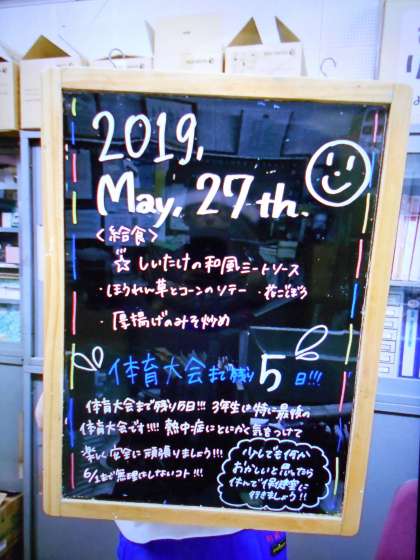 2019,
May, 27th.
〈給食〉
☆ しいたけの和風ミートソース
・ほうれん草とコーンのソテー ・花ごぼう
・厚揚げのみそ炒め
体育大会まで残り5日!!!
体育大会まで残り5日!!! 3年生は特に最後の
体育大会です!!!! 熱中症にとにかく気をつけて
楽しく安全に頑張りましょう!!!
6/1まで無理はしないコト!!!
少しでも何か
おかしいと思ったら
休んで保健室に
行きましょう!!